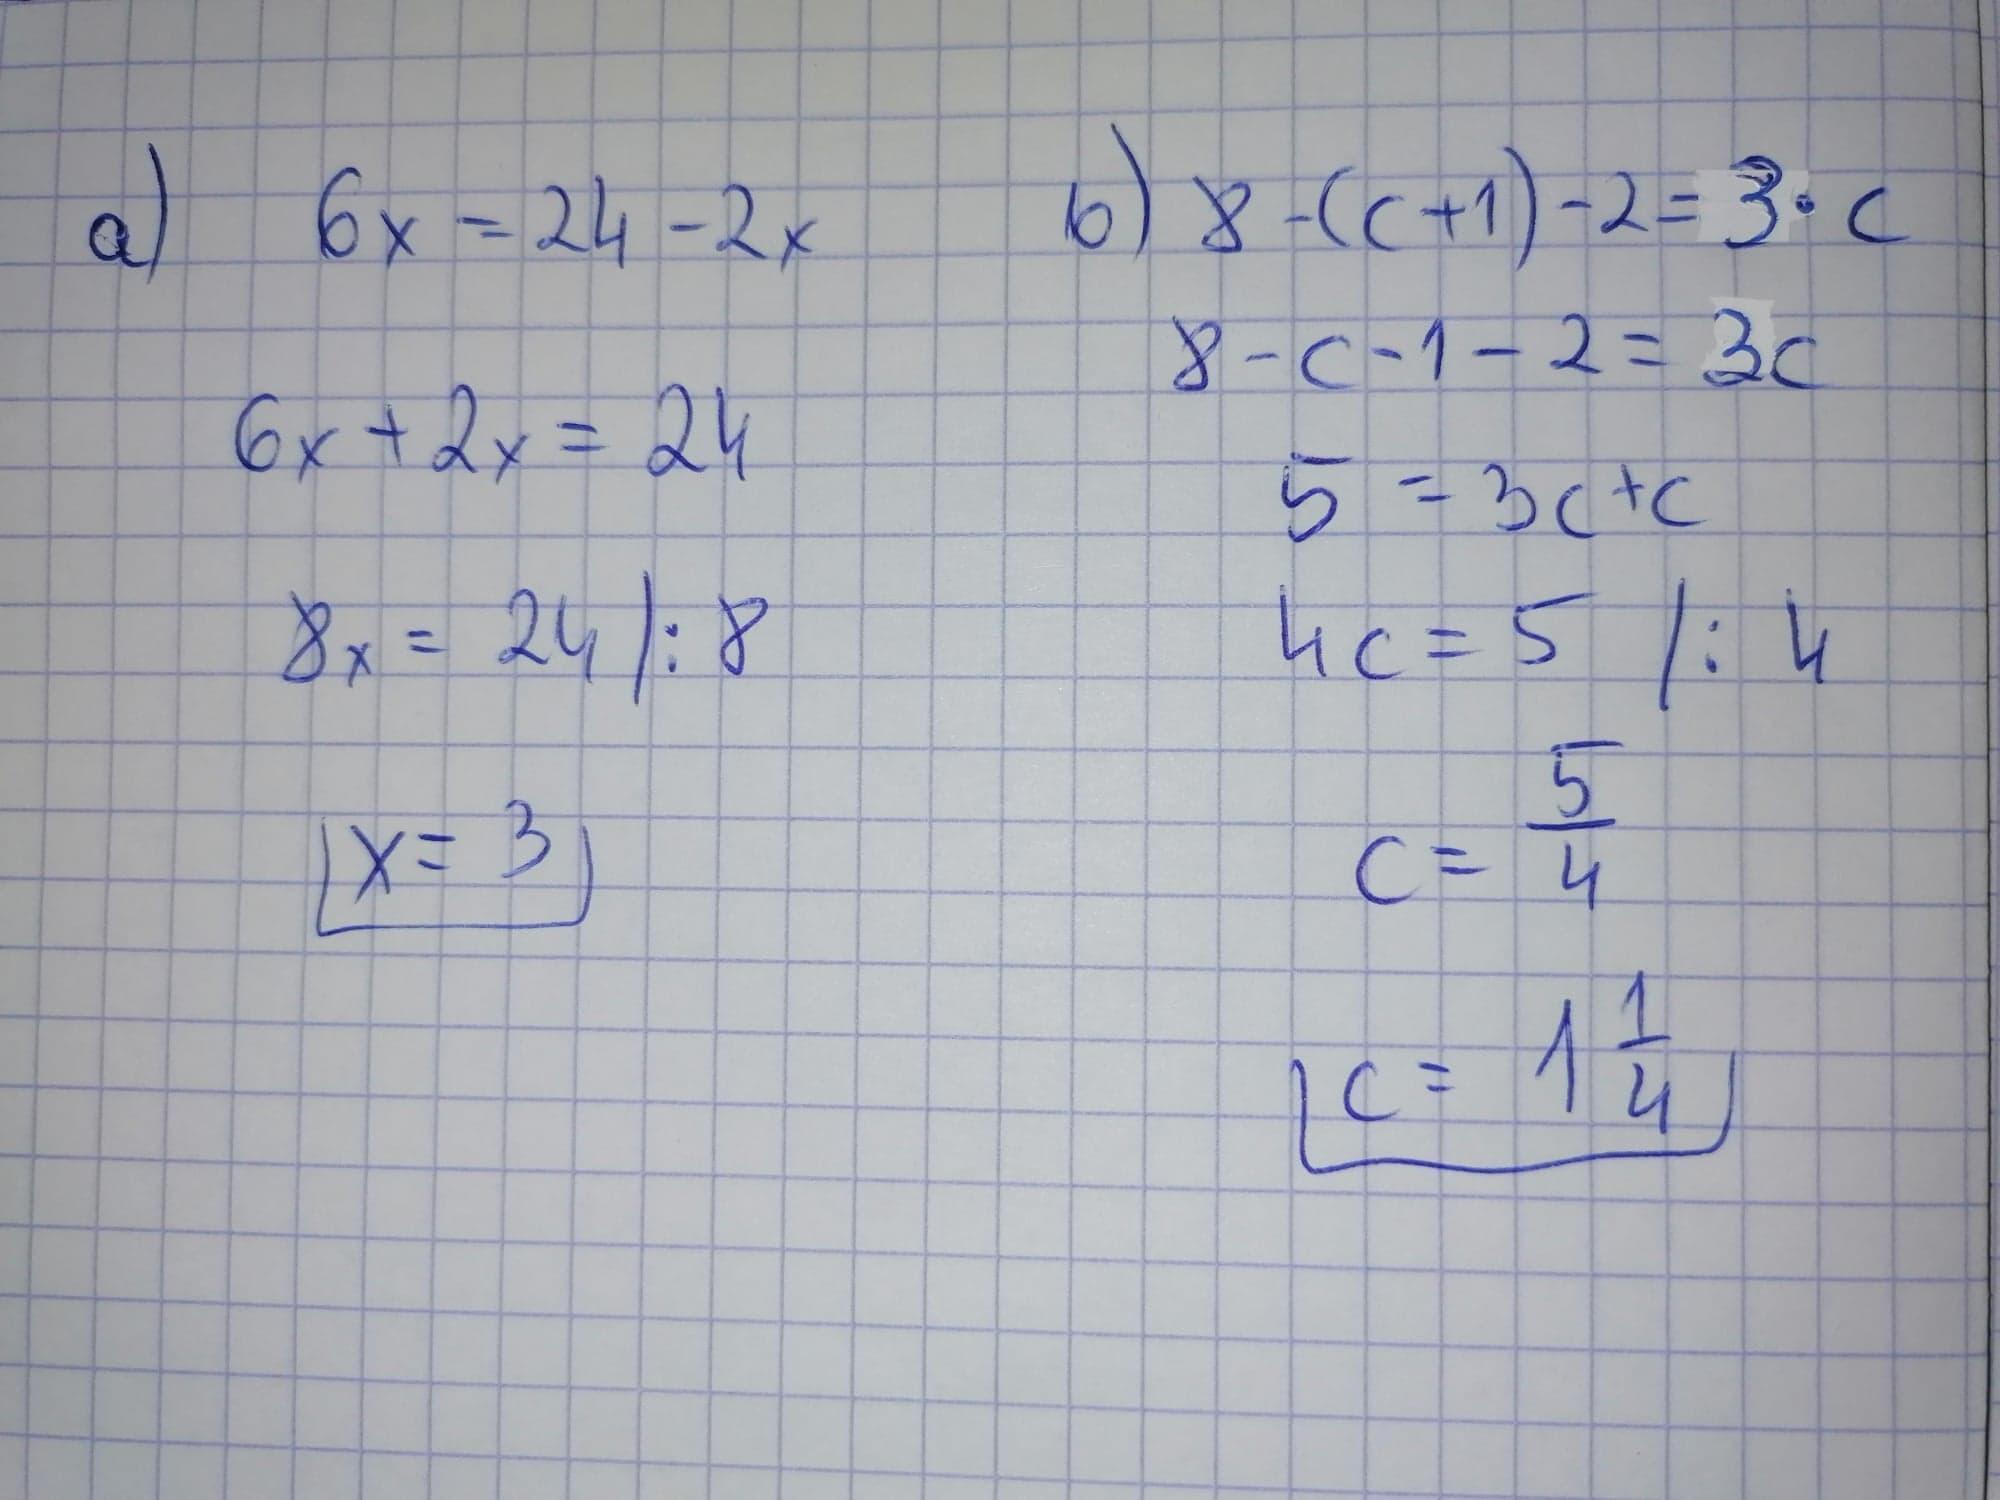 a) 6x = 24 - 2x
6x + 2x = 24
8x = 24 /: 8
x = 3
b) 8 - (c+1) - 2 = 3 · c
8 - c - 1 - 2 = 3c
5 = 3c + c
4c = 5 /: 4
c = 5/4
c = 1 1/4